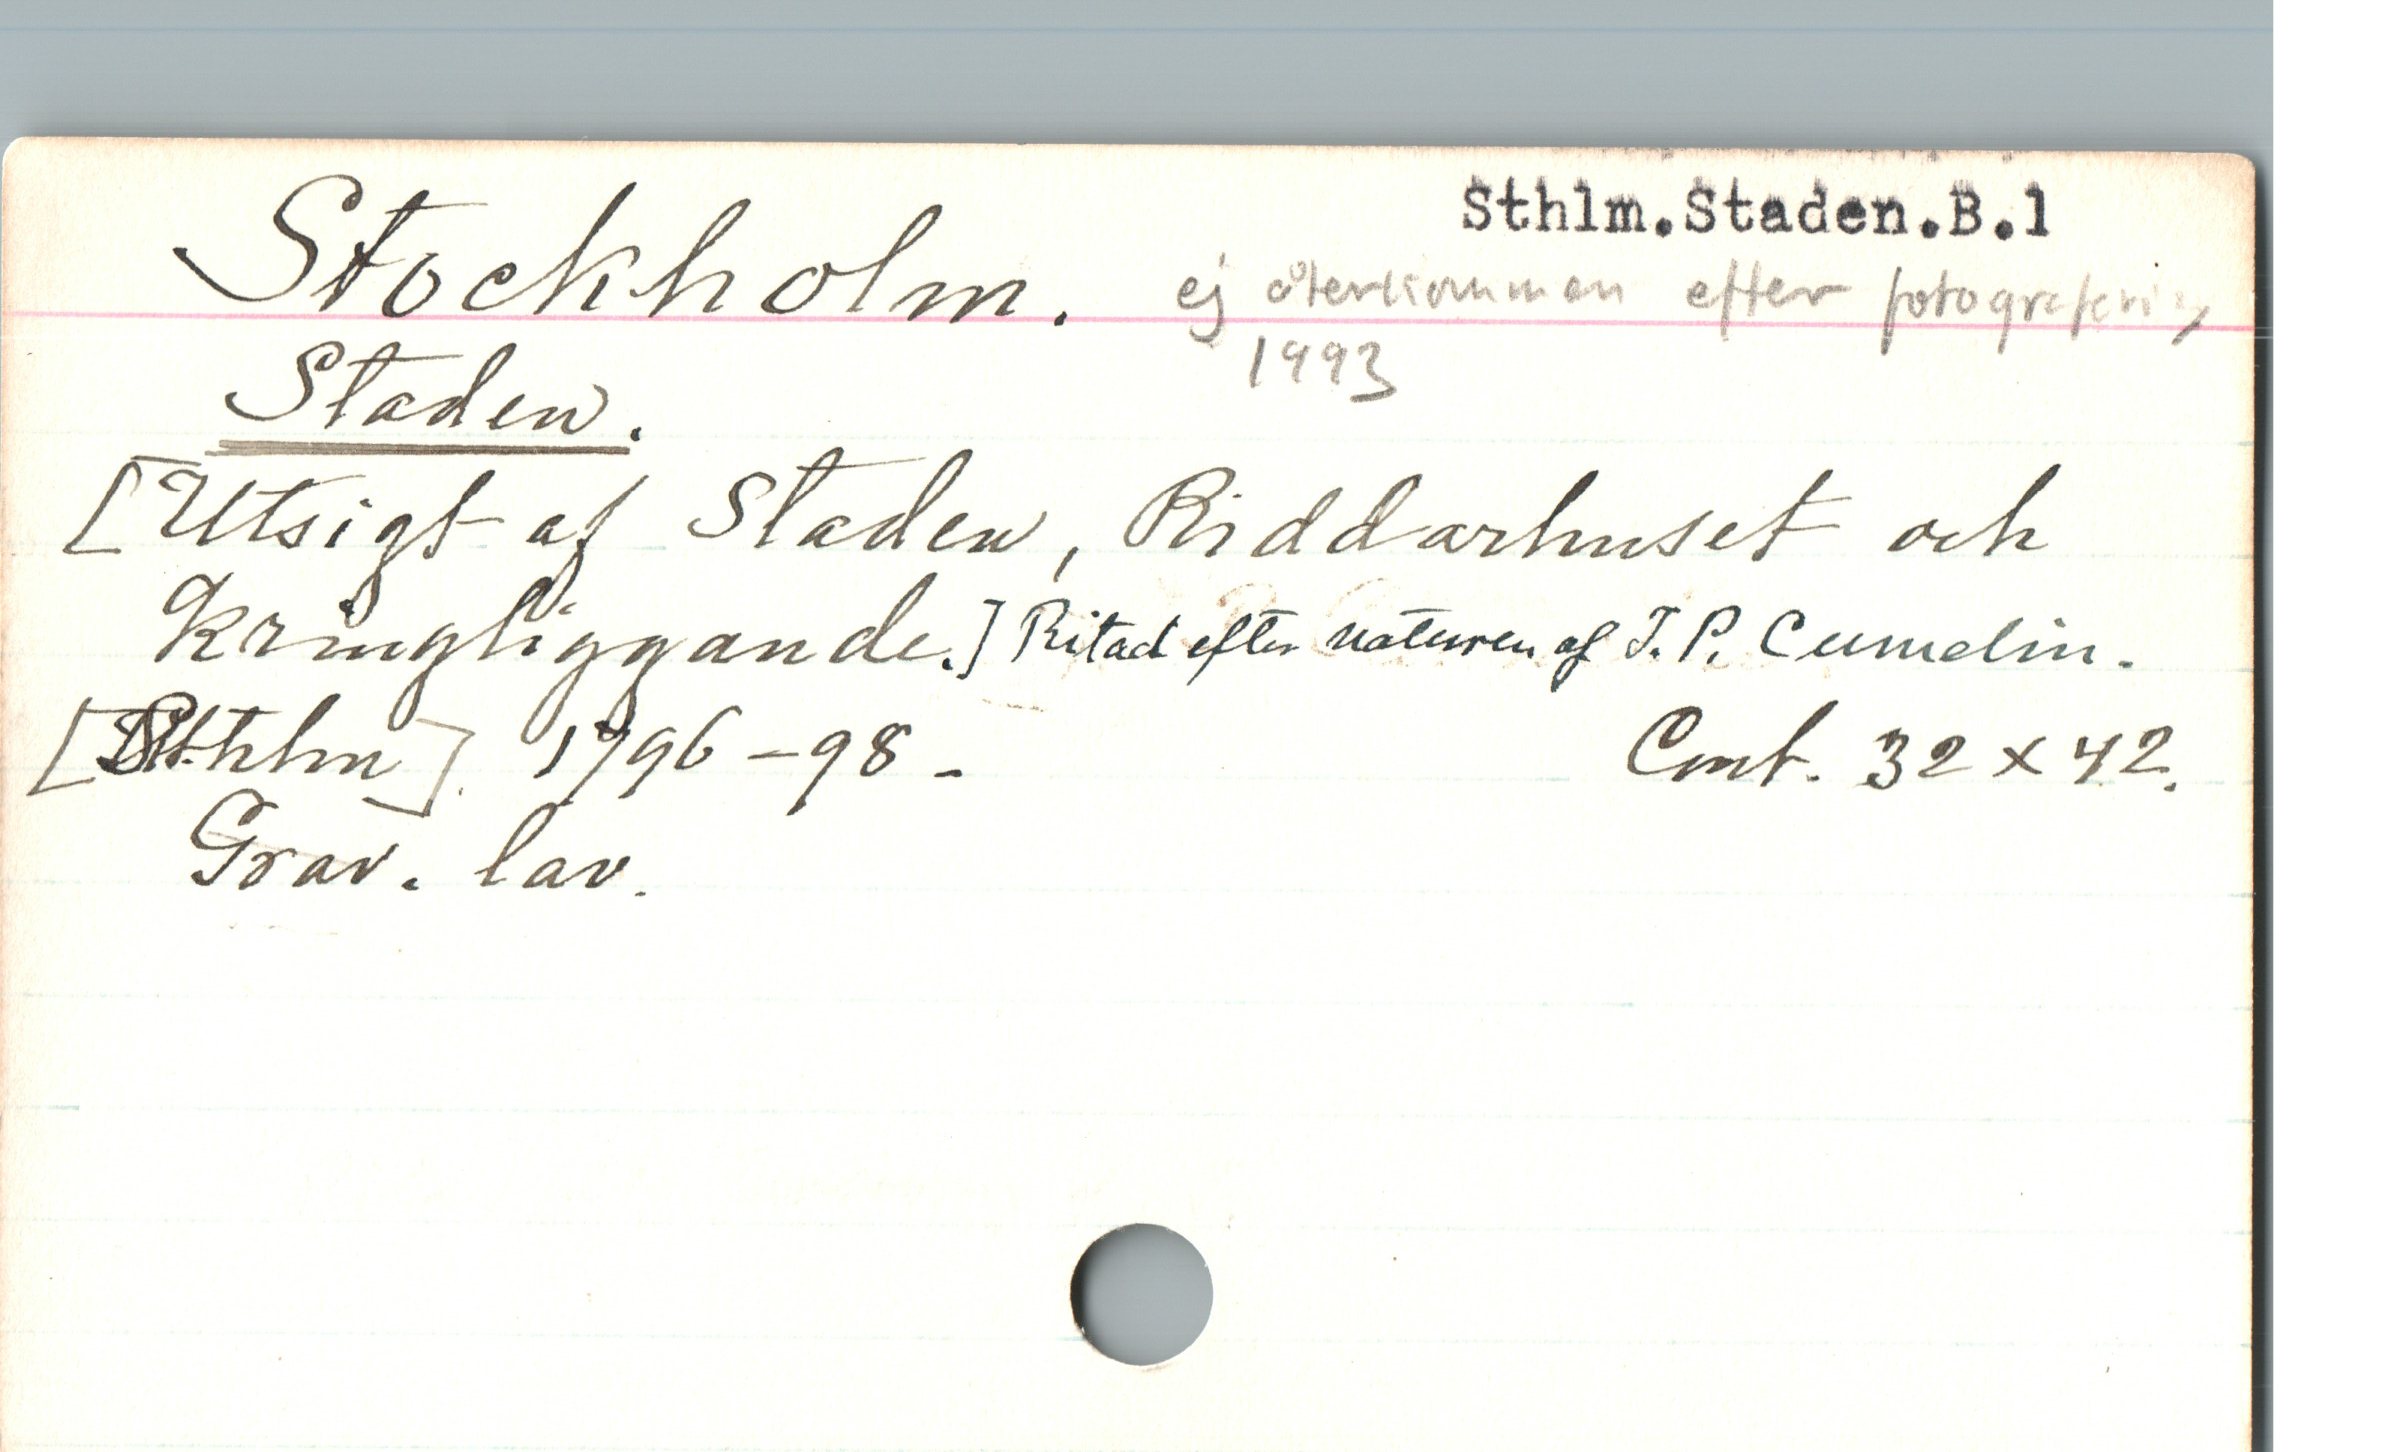 Sthlm.Staden.B.1
Stockholm.
ej återkommen efter fotografering
1993
Staden.
[Utsigt af Staden, Riddarhuset och
kringliggande.] Ritad efter naturen af J. P. Cumelin.
[Sthlm]. 1796–98 –
Cmt. 32 x 42.
Grav. lav.